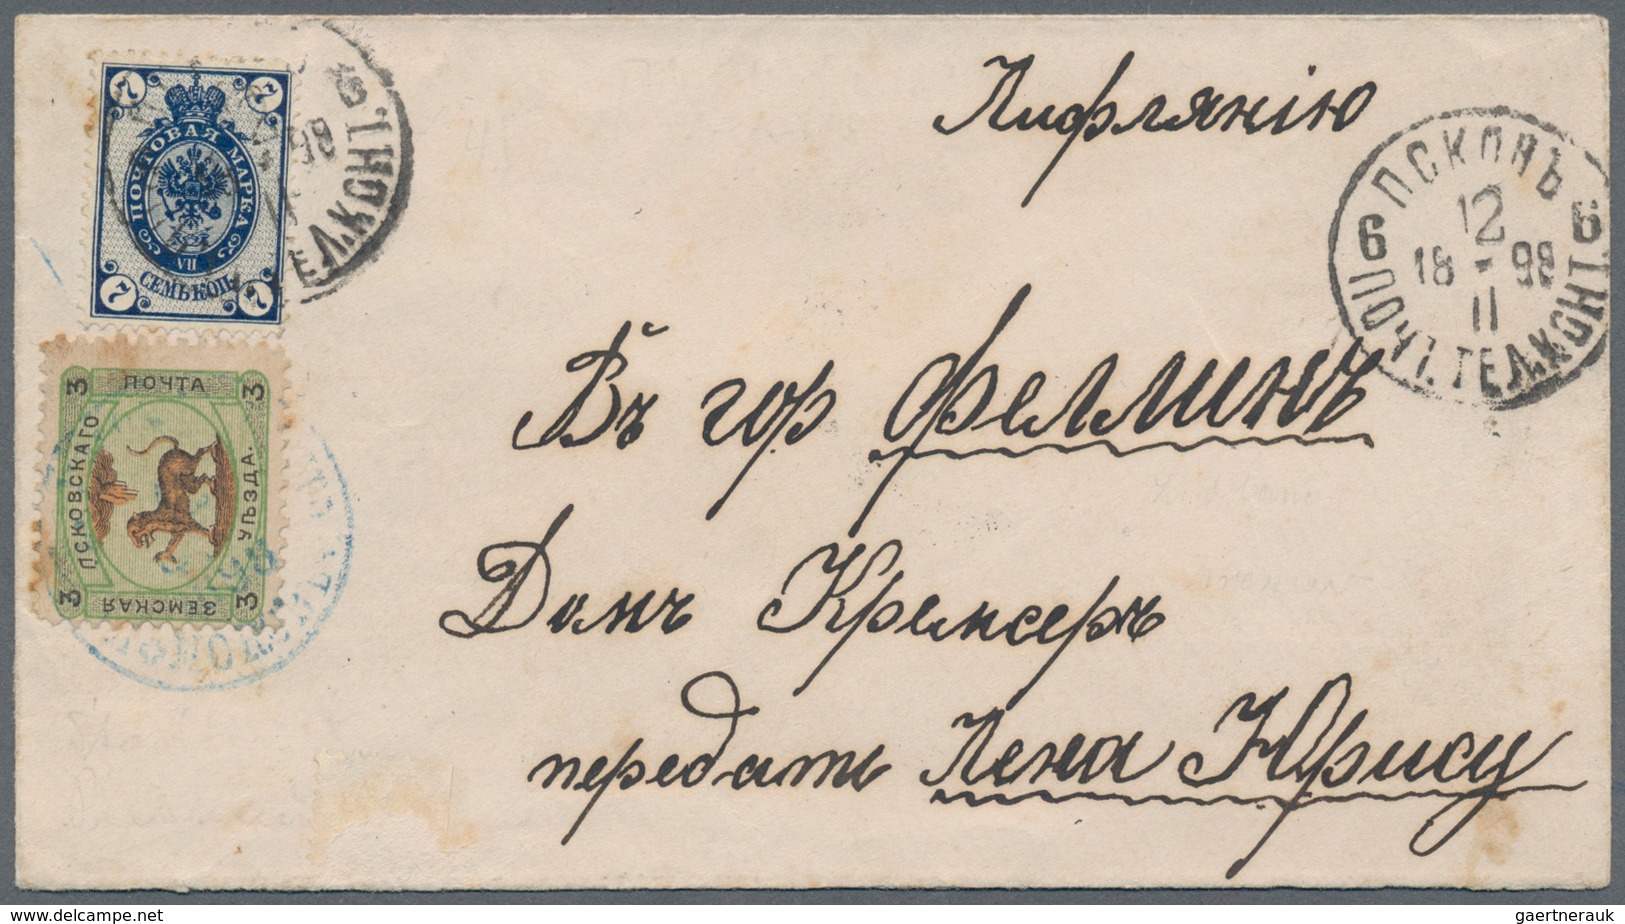 Лифляндію
Въ гор Феллинъ
Домъ Кремсеръ
передать Лена Юрису
7 7
ПОЧТОВАЯ МАРКА
VII
СЕМЬ КОП.
7 7
3 ПОЧТА 3
ПСКОВСКАГО
УѢЗДА.
3 ЗЕМСКАЯ 3
ПСКОВЪ
6 6
12
18 - 98
II
ПОЧТ. ТЕЛ. КОНТ.
gaertnerauk
delcampe.net